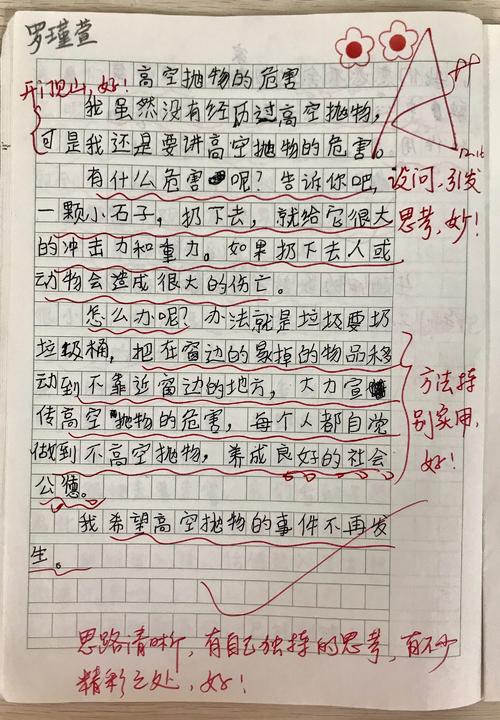 罗瑾萱
开门见山，好！
高空抛物的危害
我虽然没有经历过高空抛物，
可是我还是要讲高空抛物的危害。
有什么危害呢？告诉你吧，
设问，引发
思考，妙！
一颗小石子，扔下去，就给它很大
的冲击力和重力。如果扔下去人或
动物会造成很大的伤亡。
怎么办呢？办法就是垃圾要扔
垃圾桶，把在窗边的易掉的物品移
动到不靠近窗边的地方，大力宣
传高空抛物的危害，每个人都自觉
做到不高空抛物，养成良好的社会
公德。
方法特
别实用，
好！
我希望高空抛物的事件不再发
生。
思路清晰，有自己独特的思考，有不少
精彩之处，好！